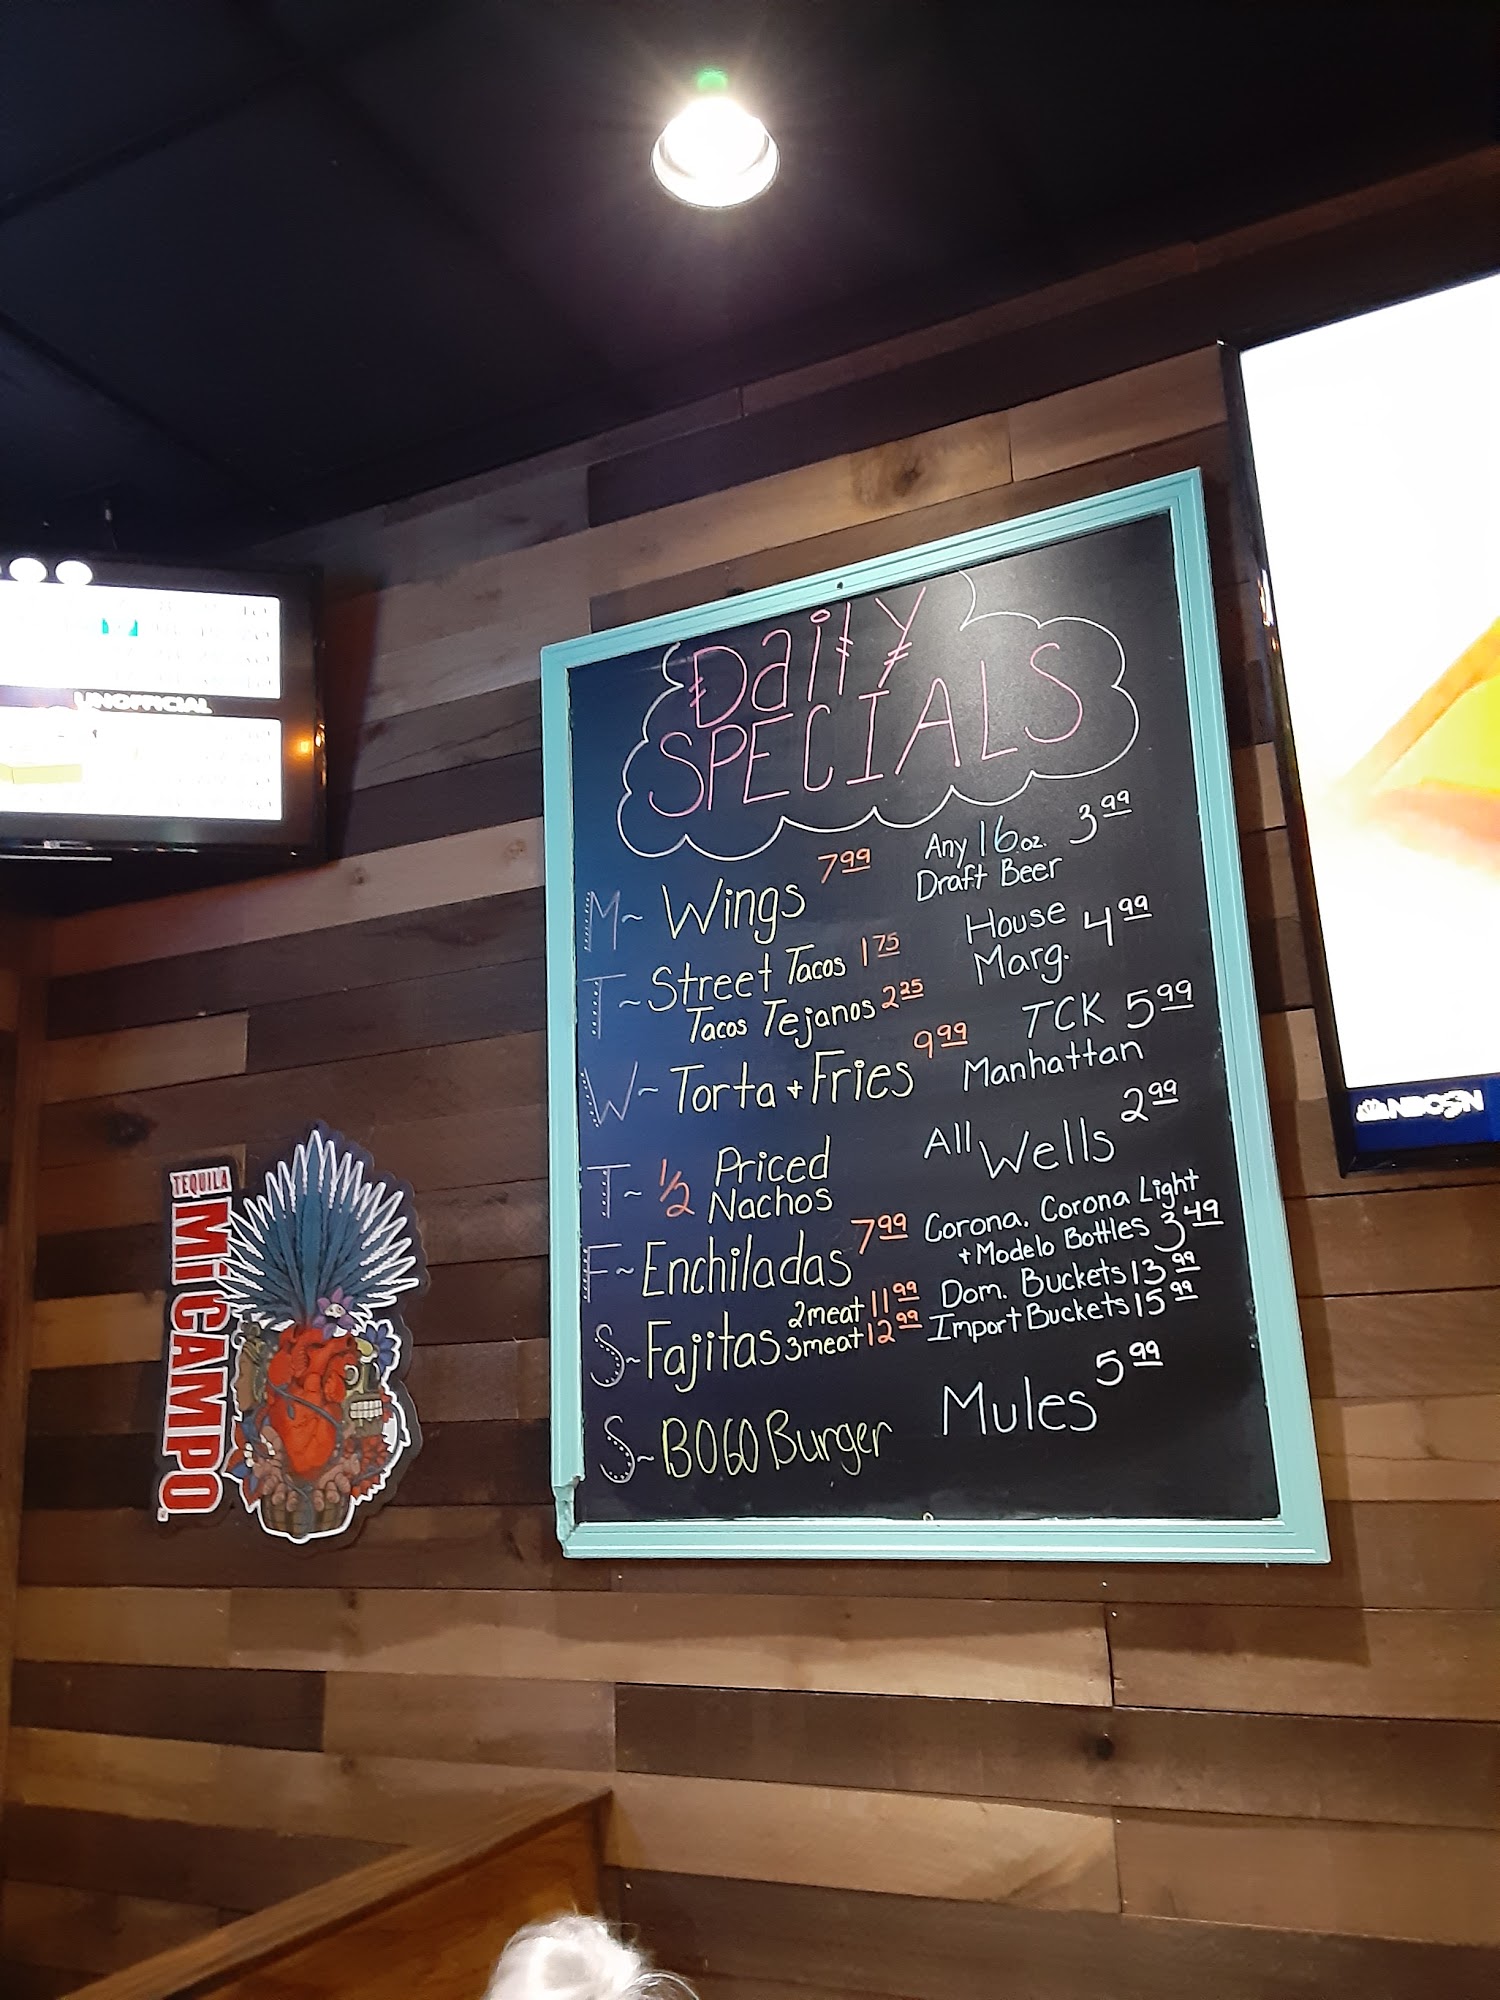 UNOFFICIAL
NBCSN
TEQUILA
Mi CAMPO
Daily
SPECIALS
M~ Wings 7 99 Any 16 oz. 3 99
Draft Beer
T~ Street Tacos 1 75 House
Tacos Tejanos 2 25 Marg. 4 99
W~ Torta + Fries 9 99 TCK 5 99
Manhattan
T~ 1/2 Priced All Wells 2 99
Nachos
F~ Enchiladas 7 99 Corona, Corona Light
+ Modelo Bottles 3 49
S~ Fajitas 2meat 11 99 Dom. Buckets 13 99
3meat 12 99 Import Buckets 15 99
S~ BOGO Burger Mules 5 99